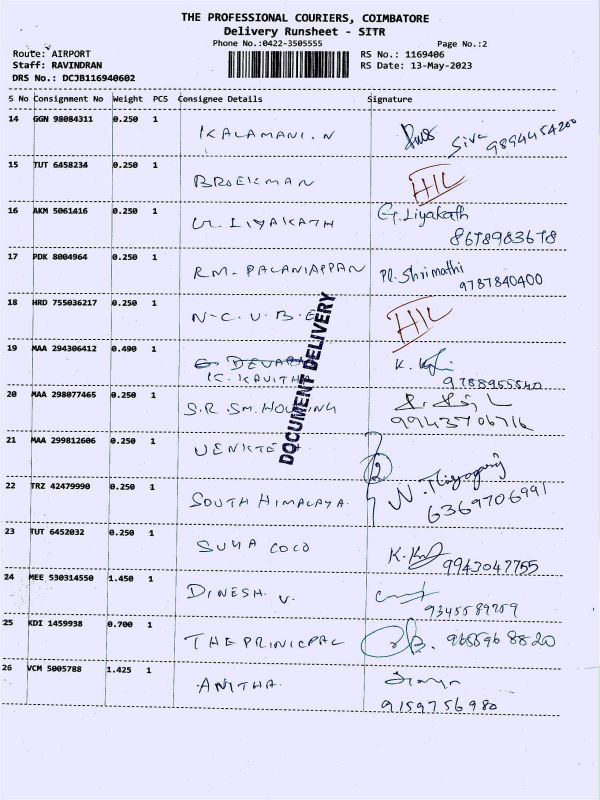 THE PROFESSIONAL COURIERS, COIMBATORE
Delivery Runsheet - SITR
Phone No.:0422-3505555 Page No.:2
Route: AIRPORT RS No.: 1169406
Staff: RAVINDRAN RS Date: 13-May-2023
DRS No.: DCJB116940602
S No Consignment No Weight PCS Consignee Details Signature
14 GGN 98084311 0.250 1
KALAMANI.N Siva 9894454200
15 TUT 6458234 0.250 1
BROEKMAN HIL
16 AKM 5061416 0.250 1
LIYAKATH G.Liyakath
8678983678
17 PDK 8004964 0.250 1
RM. PALANIAPPAN PL. Shrimathi
9787840400
18 HRD 755036217 0.250 1
N.C.U.B.E HIL
19 MAA 294306412 0.490 1
K. KAVITHA K.
9788955540
20 MAA 298077465 0.250 1
S.R. SM. HOUSING
9943706716
DOCUMENT DELIVERY
21 MAA 299812606 0.250 1
22 TRZ 42479990 0.250 1
SOUTH HIMALAYA N.
6369706991
23 TUT 6452032 0.250 1
SUYA COCO K.K 9943047755
24 MEE 530314550 1.450 1
DINESH. V.
9345589759
25 KDI 1459938 0.700 1
THE PRINICPAL 9655968820
26 VCM 5005788 1.425 1
ANITHA.
9159756980